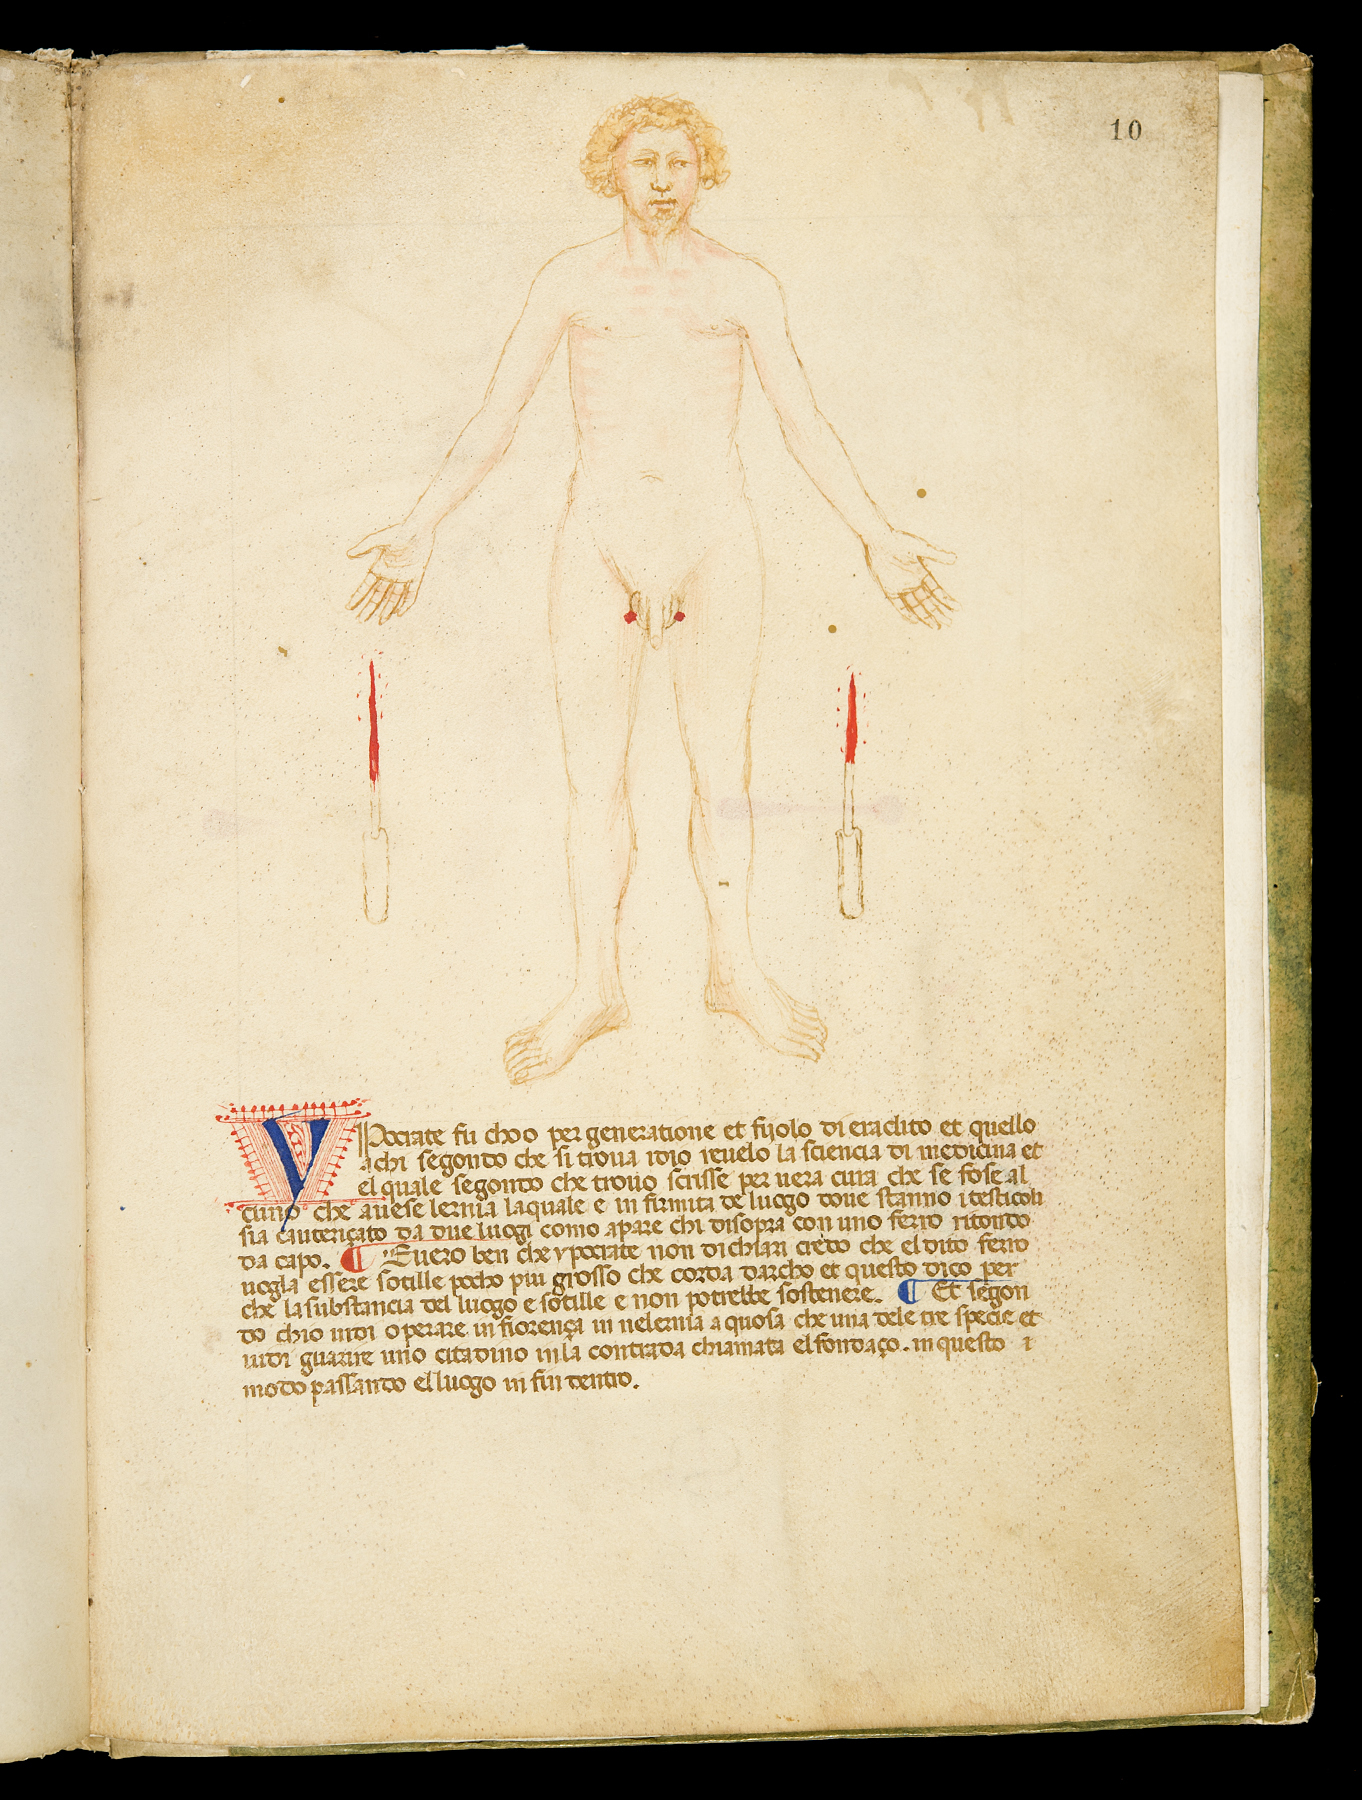 10
YPocrate fu choo per generatione et fijolo di eraclito et quello
achi segondo che si trova idio revelo la sciencia di medicina et
el quale segondo che trovo scrisse per vera cura che se fose al
cuno che avese lernia laquale e in firmita de luogo dove stanno i testicoli
sia cauteriçato da due luogi como apare chi disopra con uno ferro ritondo
da capo. ¶ Evero ben che ypocrate non dichiari credo che el dito ferro
vogla essere sotille pocho piu grosso che corda darcho et questo dico per
che la substancia del luogo e sotille e non potrebbe sostenere. ¶ Et segon
do chio vidi operare in fiorença in nelernia aquosa che una dele tre specie et
vidi guarire uno citadino inla contrada chiamata el fondaço. in questo
modo passando el luogo in fin dentro.